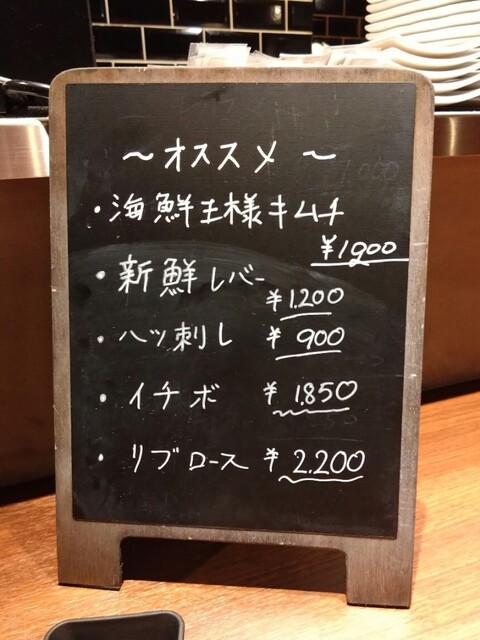 ～オススメ～
・海鮮王様キムチ
¥1900
・新鮮レバー
¥1.200
・ハツ刺し ¥900
・イチボ ¥1.850
・リブロース ¥2.200